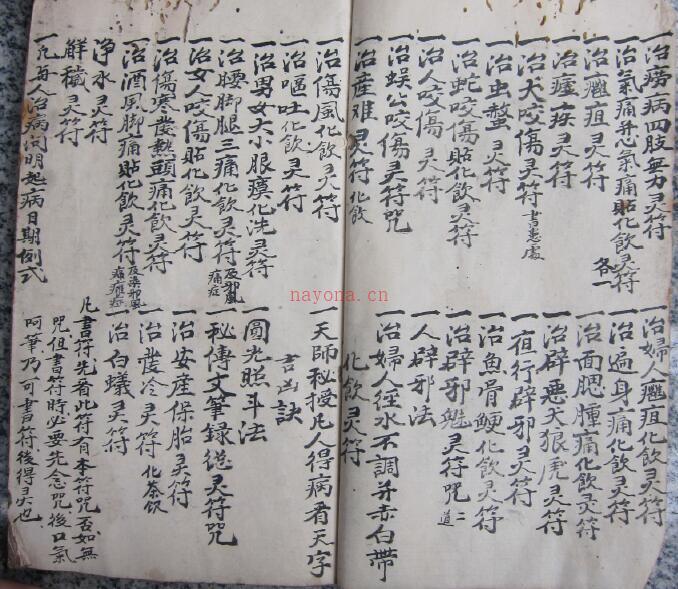 一治痨病四肢無力灵符
一治氣痛并心氣痛貼化飲灵符 各一
一治癰疽灵符
一治瘧疾灵符
一治犬咬傷灵符 書患處
一治虫螫灵符
一治蛇咬傷貼化飲灵符
一治人咬傷灵符
一治蜈公咬傷灵符咒
一治産难灵符 化飲
一治婦人癰疽化飲灵符
一治遍身痛化飲灵符
一治面腮腫痛化飲灵符
一治辟悪犬狼虎灵符
一宿行辟邪灵符
一治魚骨鯁化飲灵符
一治辟邪魁灵符咒 二道
一人辟邪法
一治婦人徑水不調并赤白帶
化飲灵符
一治傷風化飲灵符
一治嘔吐化飲灵符
一治男女大小眼瘼化洗灵符
一治腰脚腿三痛化飲灵符 及邪風痛症
一治女人咬傷貼化飲灵符
一治傷寒發熱頭痛化飲灵符
一治酒風脚痛貼化飲灵符 及染邪風痛癱症
一净水灵符
一解穢灵符
一凡与人治病问明起病日期例式
一天師秘授凡人得病看天字
吉凶訣
一圓光照斗法
一秘傳文筆錄总灵符咒
一治安産保胎灵符
一治發冷灵符 化茶飲
一治白蟻灵符
凡書符先看此符有本符咒否如無
咒但書符時必要先念咒後口氣
呵筆乃可書符後得灵也
nayona.cn